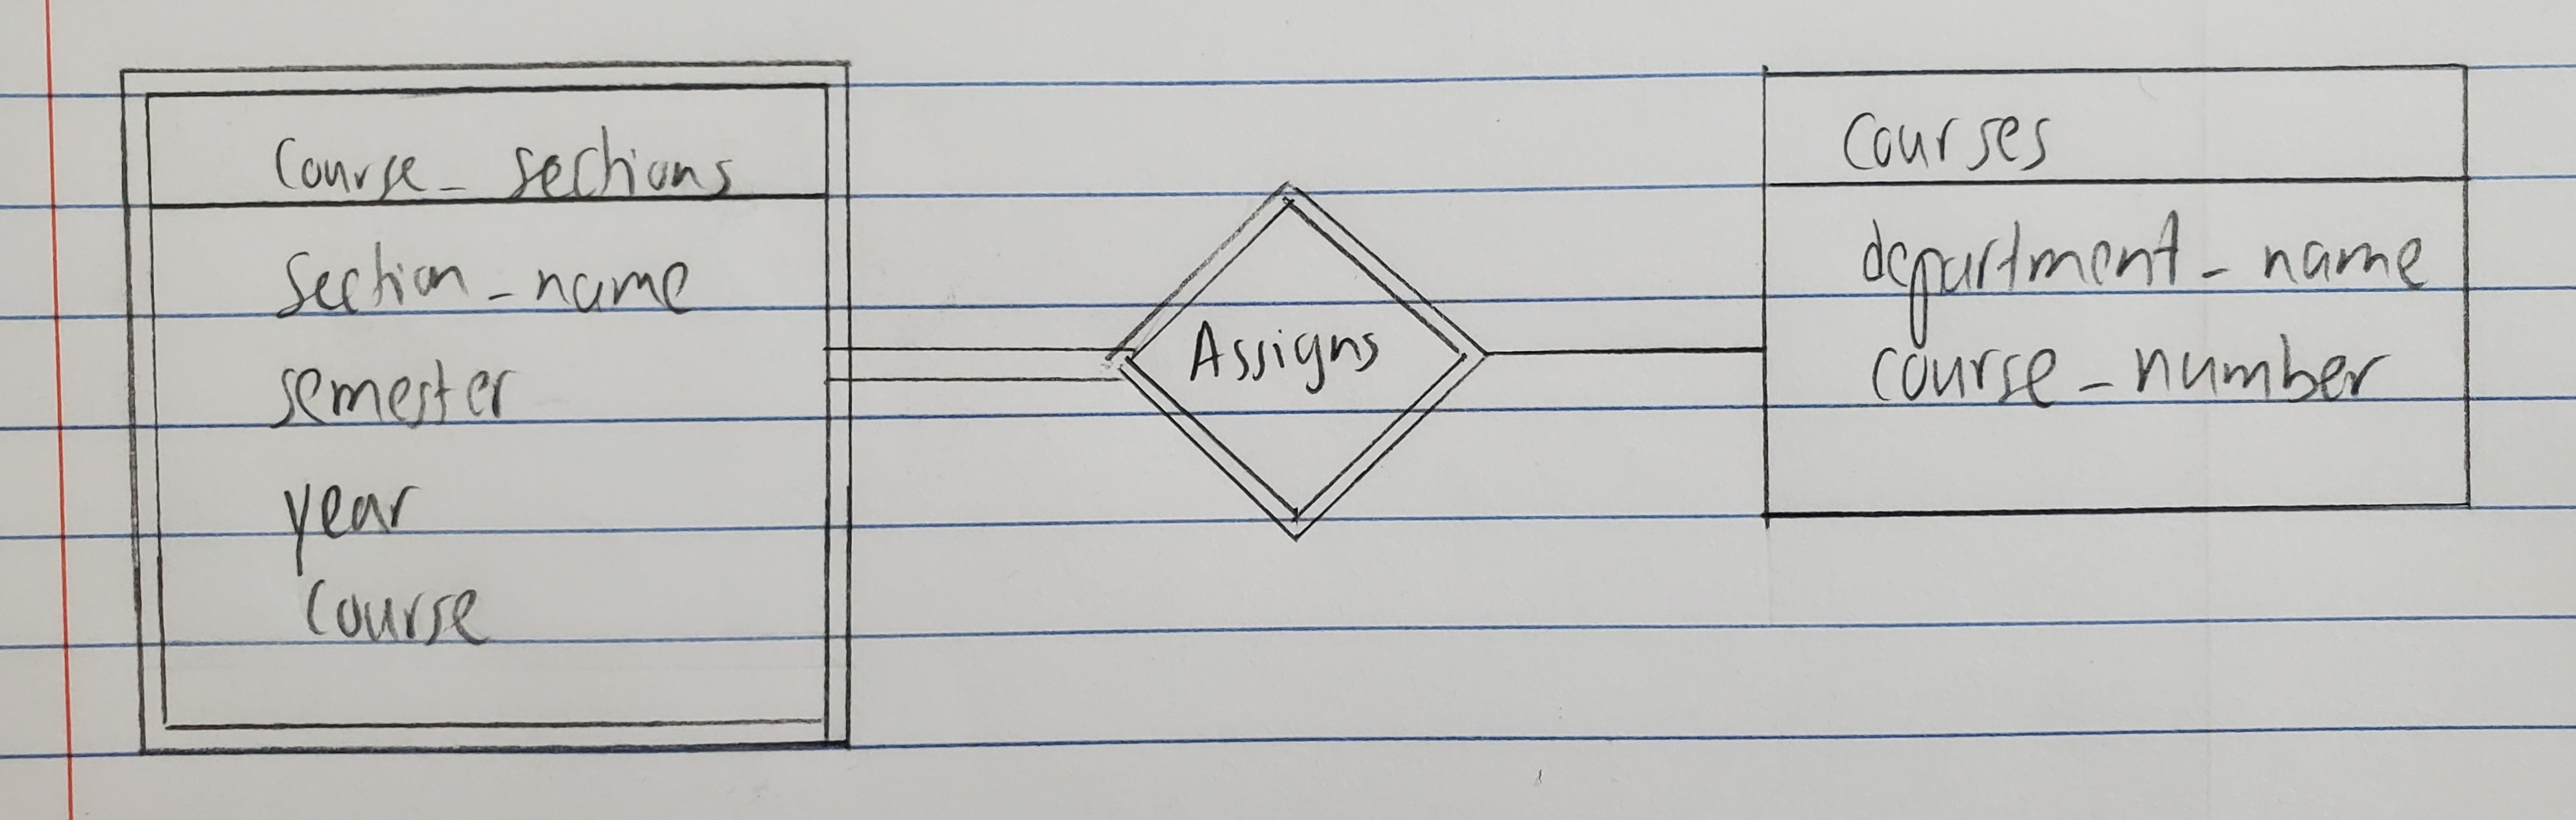 Course_sections
Section_name
semester
year
Course
Assigns
Courses
department_name
course_number